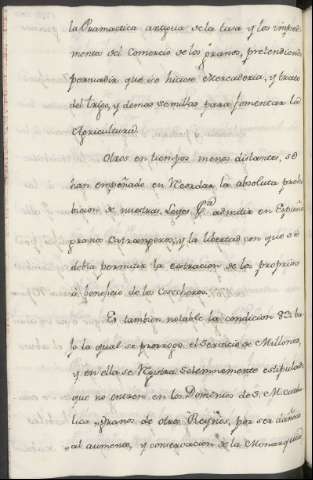 la Pramactica antigua de la tasa y los impedi-
mentos del Comercio de los granos, pretendiendo
persuadir que se hiciese Mercadoria, y trato
del trigo, y demas semillas para fomentar la
Agricultura.
Otros en tiempos menos distantes, se
han empeñado en Recordar la absoluta prohi-
bicion de nuestras Leyes pa. admitir en España
granos extrangeros, y la libertad con que se
debia permitir la extracion de los proprios
à beneficio de los Cosecheros.
Es tambien notable la condicion 83 ba-
jo la qual se prorrogo el Servicio de Millones,
y en ella se Registra Solemnemente estipulado
que no entren en los Dominios de S. M. catho-
lica "granos de otros Reynos, por ser dañoso
"al aumento, y conservacion de la Monarquia